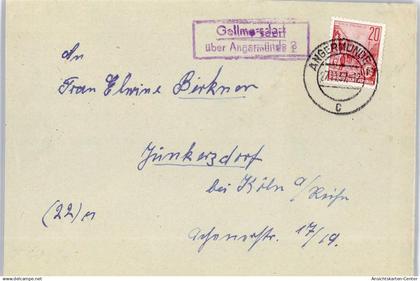 Gollmersdorf
über Angermünde 2
ANGERMÜNDE
C
20
An
Frau Elwine Birkner
Junkersdorf
bei Köln a/Rhein
(22)
17/19.
Ansichtskarten-Center